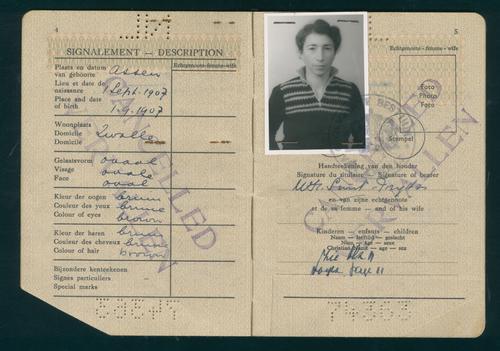 4
SIGNALEMENT — DESCRIPTION
Plaats en datum van geboorte
Lieu et date de naissance
Place and date of birth
Assen
1 Sept. 1907
1.9.1907
Echtgenoote-femme-wife
Woonplaats
Domicile
Domicile
Zwolle
Gelaatsvorm
Visage
Face
ovaal
ovale
oval
Kleur der oogen
Couleur des yeux
Colour of eyes
bruin
brune
brown
Kleur der haren
Couleur des cheveux
Colour of hair
bruin
brune
brown
Bijzondere kenteekenen
Signes particuliers
Special marks
CANCELLED
5
Echtgenoote-femme-wife
Foto
Photo
Foto
Stempel
Handteekening van den houder
Signature du titulaire — Signature of bearer
en van zijne echtgenoote
et de sa femme — and of his wife
Kinderen — enfants — children
Naam — leeftijd — geslacht
Nom — Age — sexe
Christian name — age — sex
74363